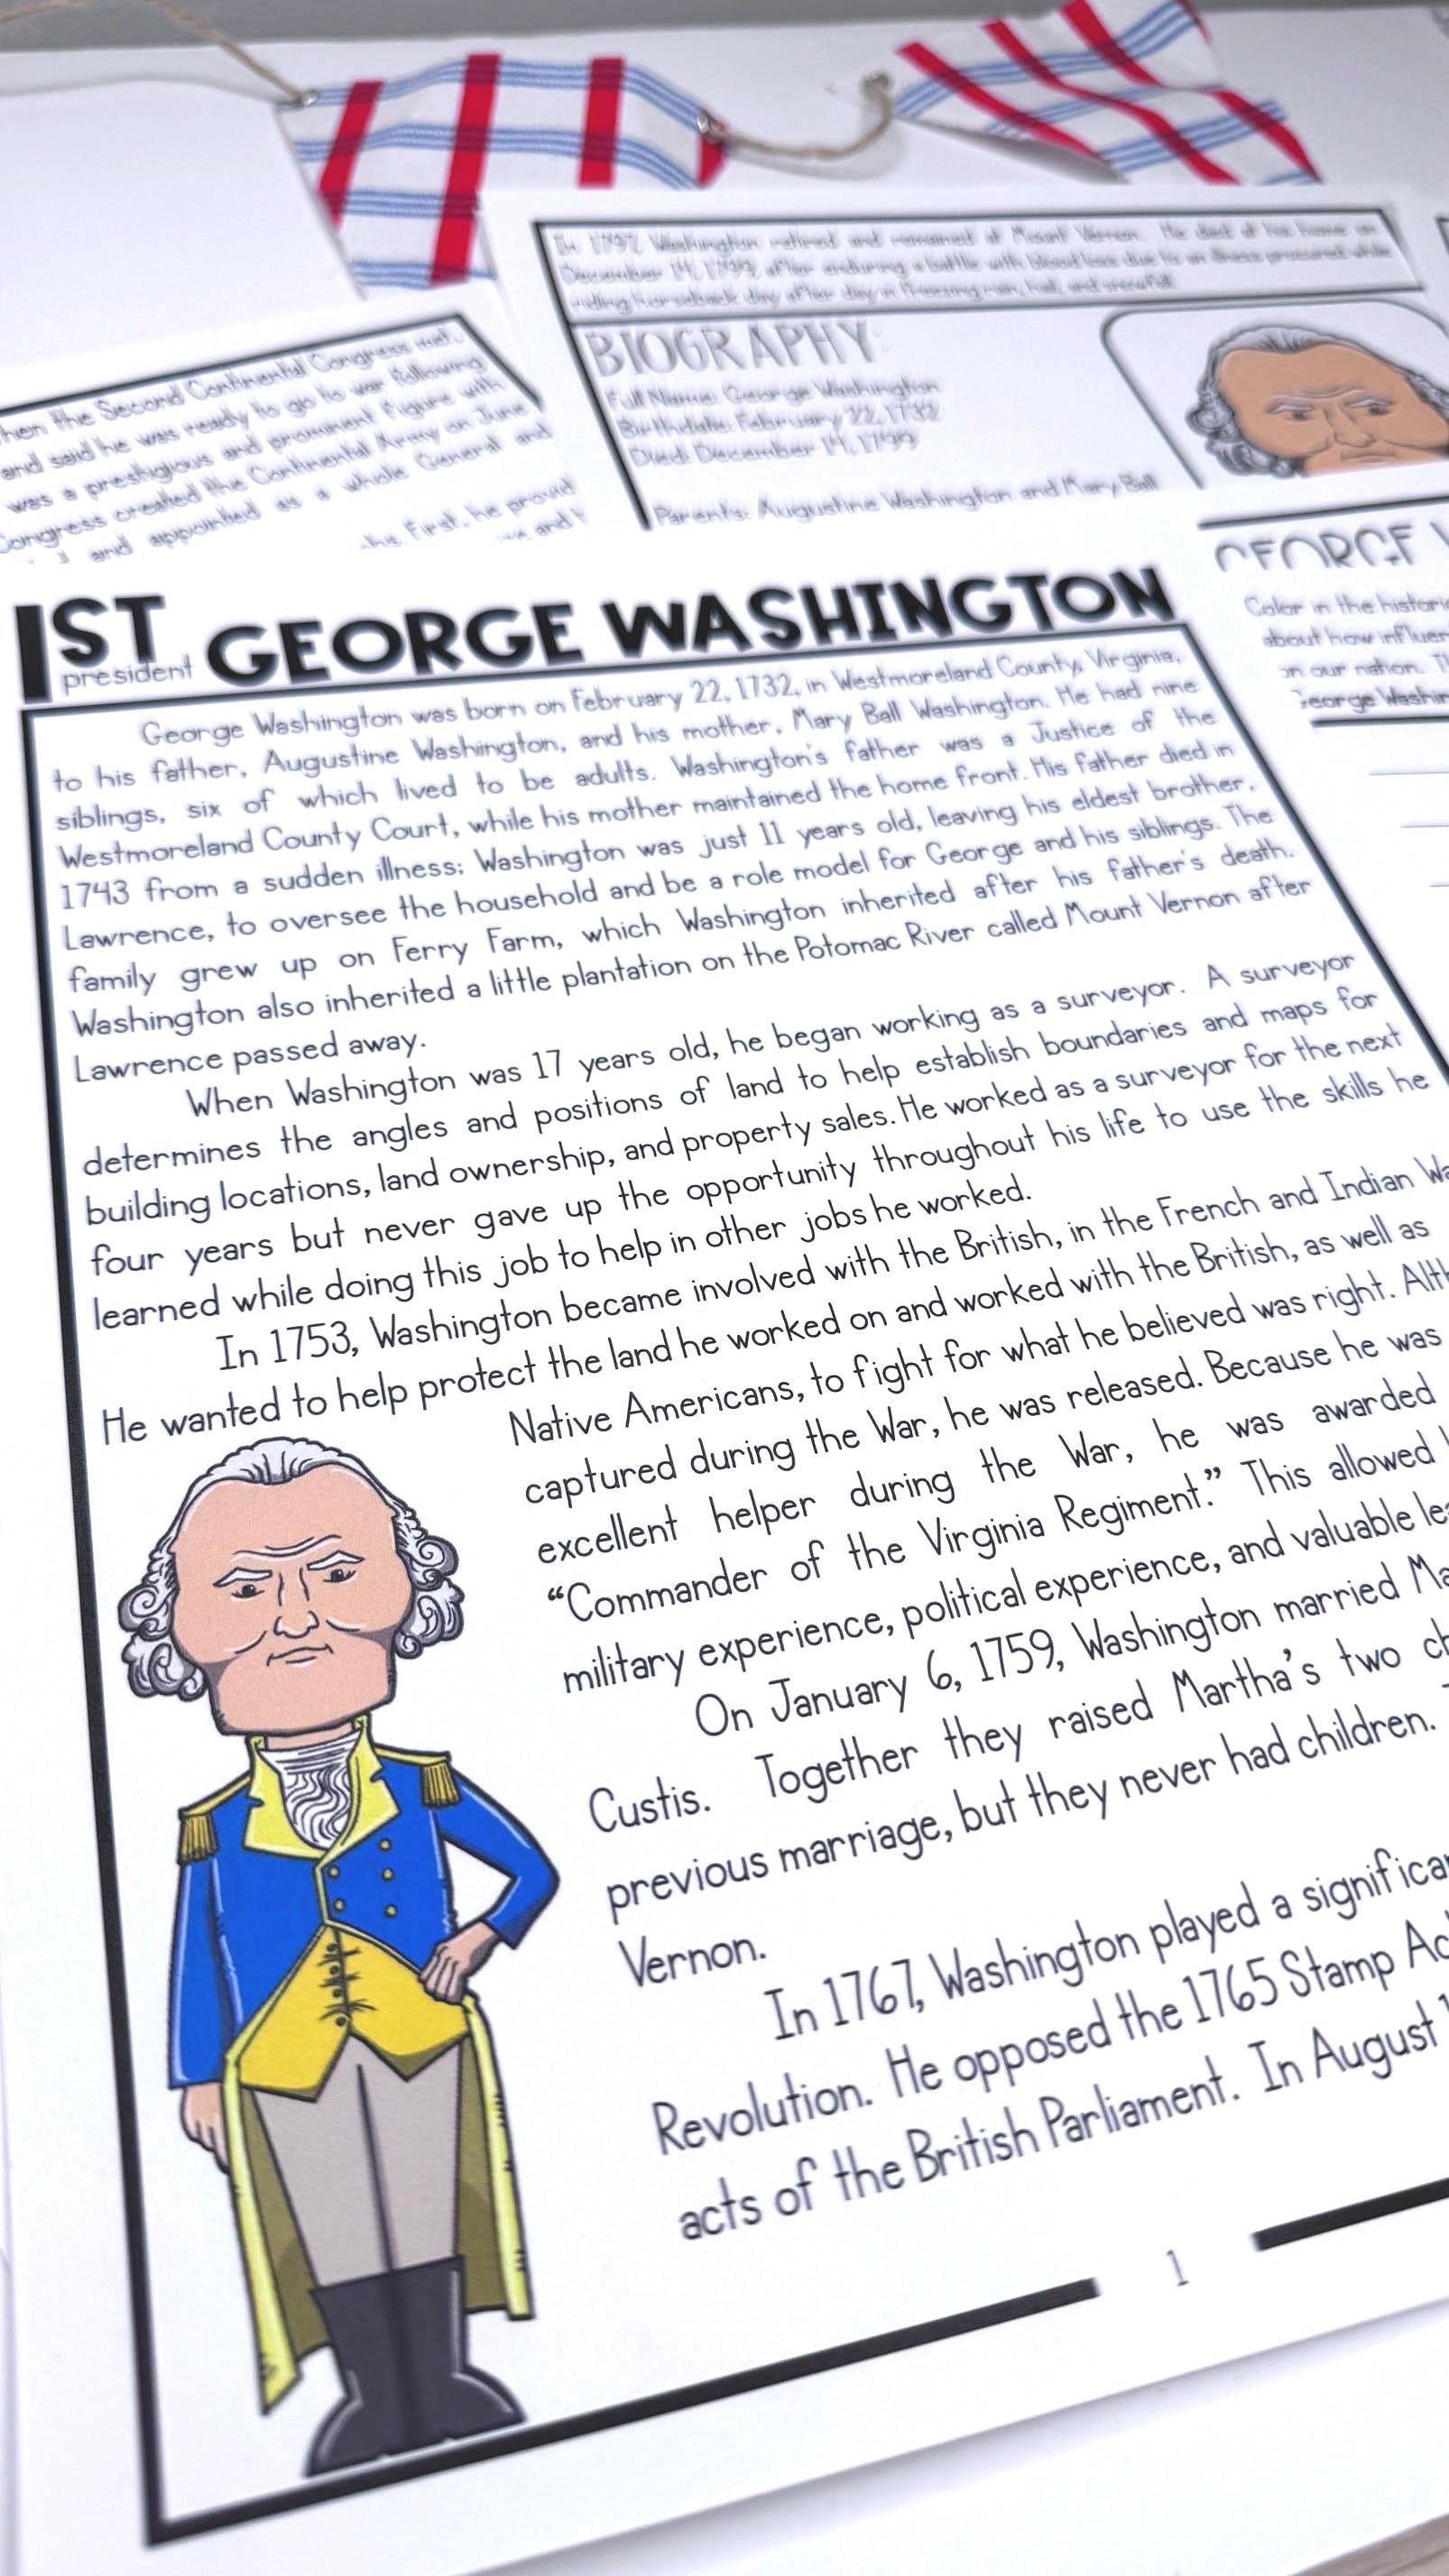 In 1797, Washington retired and remained at Mount Vernon. He died at his home on
December 14, 1799, after enduring a battle with blood loss due to an illness procured while
riding horseback day after day in freezing rain, hail, and snowfall.
BIOGRAPHY:
Full Name: George Washington
Birthdate: February 22, 1732
Died: December 14, 1799
Parents: Augustine Washington and Mary Ball
hen the Second Continental Congress met,
and said he was ready to go to war following
was a prestigious and prominent figure with
Congress created the Continental Army on June
and appointed as a whole General and
this. First, he provid
and
GEORGE
Color in the histori
about how influen
on our nation.
George Washin
1ST president GEORGE WASHINGTON
George Washington was born on February 22, 1732, in Westmoreland County, Virginia,
to his father, Augustine Washington, and his mother, Mary Ball Washington. He had nine
siblings, six of which lived to be adults. Washington's father was a Justice of the
Westmoreland County Court, while his mother maintained the home front. His father died in
1743 from a sudden illness; Washington was just 11 years old, leaving his eldest brother,
Lawrence, to oversee the household and be a role model for George and his siblings. The
family grew up on Ferry Farm, which Washington inherited after his father's death.
Washington also inherited a little plantation on the Potomac River called Mount Vernon after
Lawrence passed away.
When Washington was 17 years old, he began working as a surveyor. A surveyor
determines the angles and positions of land to help establish boundaries and maps for
building locations, land ownership, and property sales. He worked as a surveyor for the next
four years but never gave up the opportunity throughout his life to use the skills he
learned while doing this job to help in other jobs he worked.
In 1753, Washington became involved with the British, in the French and Indian Wa
He wanted to help protect the land he worked on and worked with the British, as well as
Native Americans, to fight for what he believed was right. Alth
captured during the War, he was released. Because he was
excellent helper during the War, he was awarded
“Commander of the Virginia Regiment.” This allowed
military experience, political experience, and valuable le
On January 6, 1759, Washington married Ma
Custis. Together they raised Martha's two ch
previous marriage, but they never had children.
Vernon.
In 1767, Washington played a significa
Revolution. He opposed the 1765 Stamp Ac
acts of the British Parliament. In August 1
1